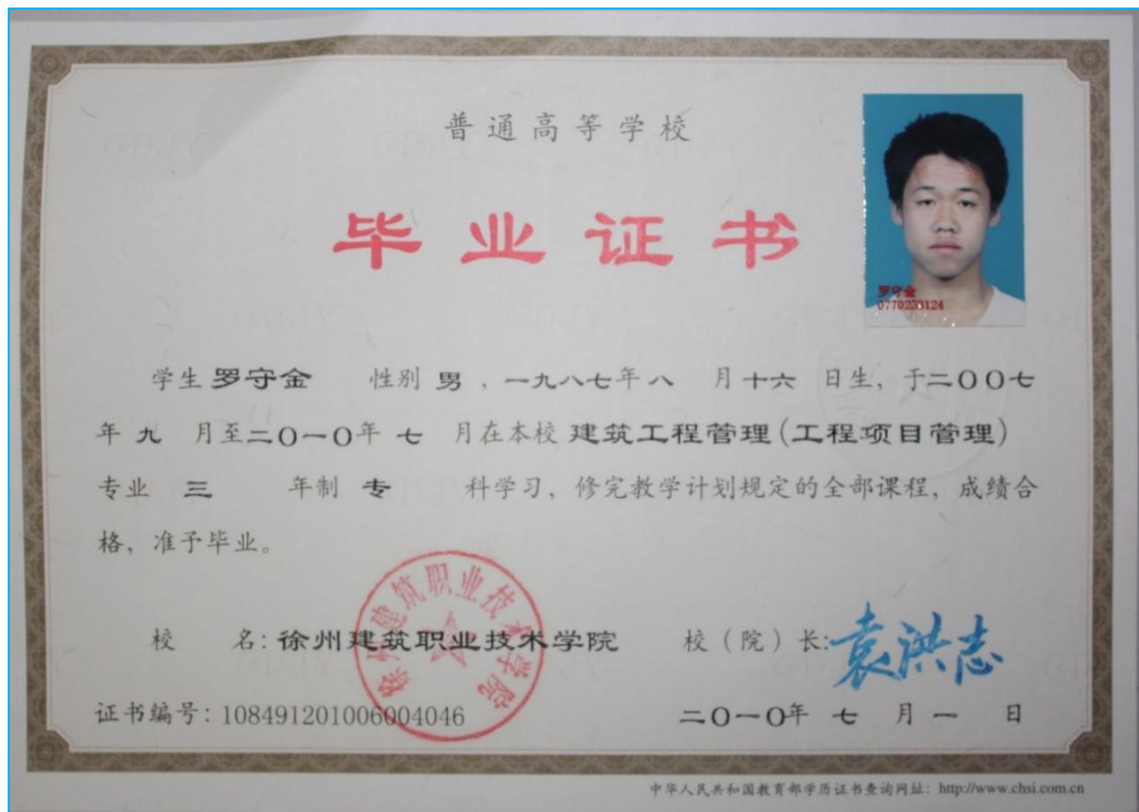 普通高等学校
毕业证书
罗守金
0770233124
学生 罗守金 性别 男 ，一九八七年 八 月 十六 日生，于二〇〇七
年 九 月至二〇一〇年 七 月在本校 建筑工程管理(工程项目管理)
专业 三 年制 专 科学习，修完教学计划规定的全部课程，成绩合
格，准予毕业。
徐州建筑职业技术学院
校 名：徐州建筑职业技术学院 校（院）长：袁洪志
证书编号：108491201006004046 二〇一〇年 七 月 一 日
中华人民共和国教育部学历证书查询网址：http://www.chsi.com.cn